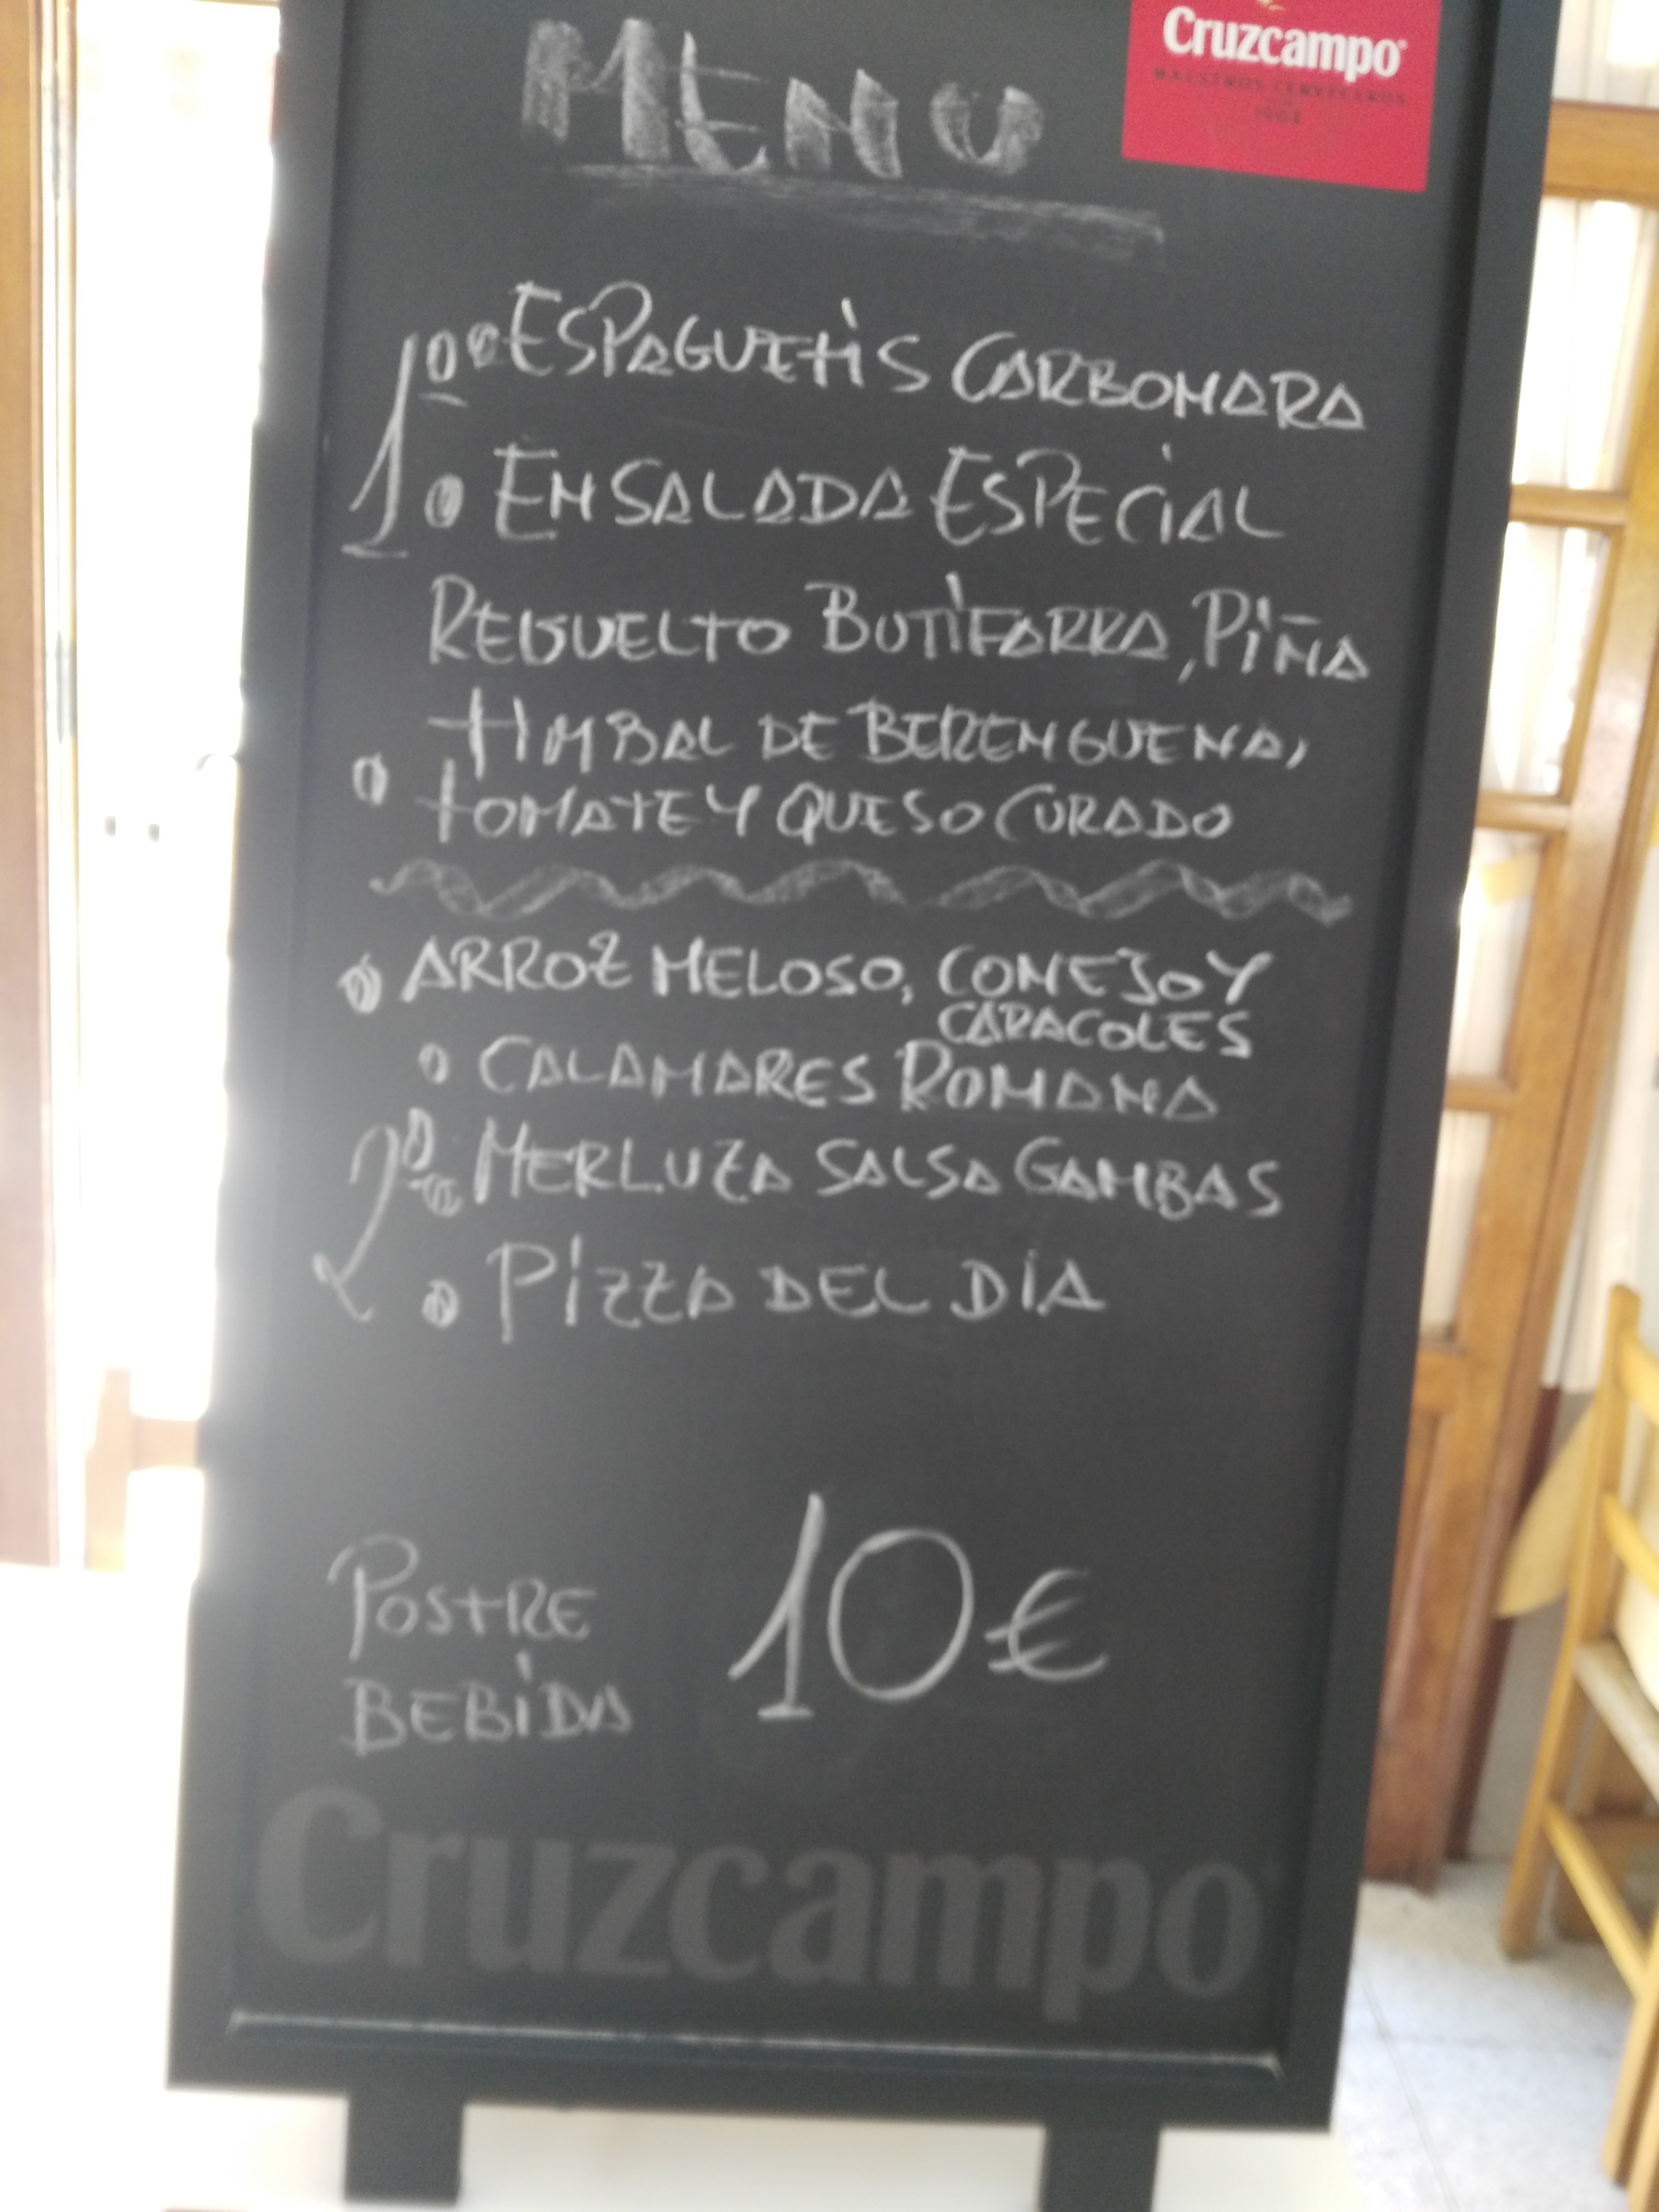 Cruzcampo
MAESTROS CERVECEROS
1904
MENU
1º ESPAGUETIS CARBONARA
ENSALADA ESPECIAL
REVUELTO BUTIFARRA, PIÑA
TIMBAL DE BERENGUENA,
TOMATE Y QUESO CURADO
ARROZ MELOSO, CONEJO Y
CARACOLES
CALAMARES ROMANA
2º MERLUZA SALSA GAMBAS
PIZZA DEL DIA
POSTRE
BEBIDA
10€
Cruzcampo